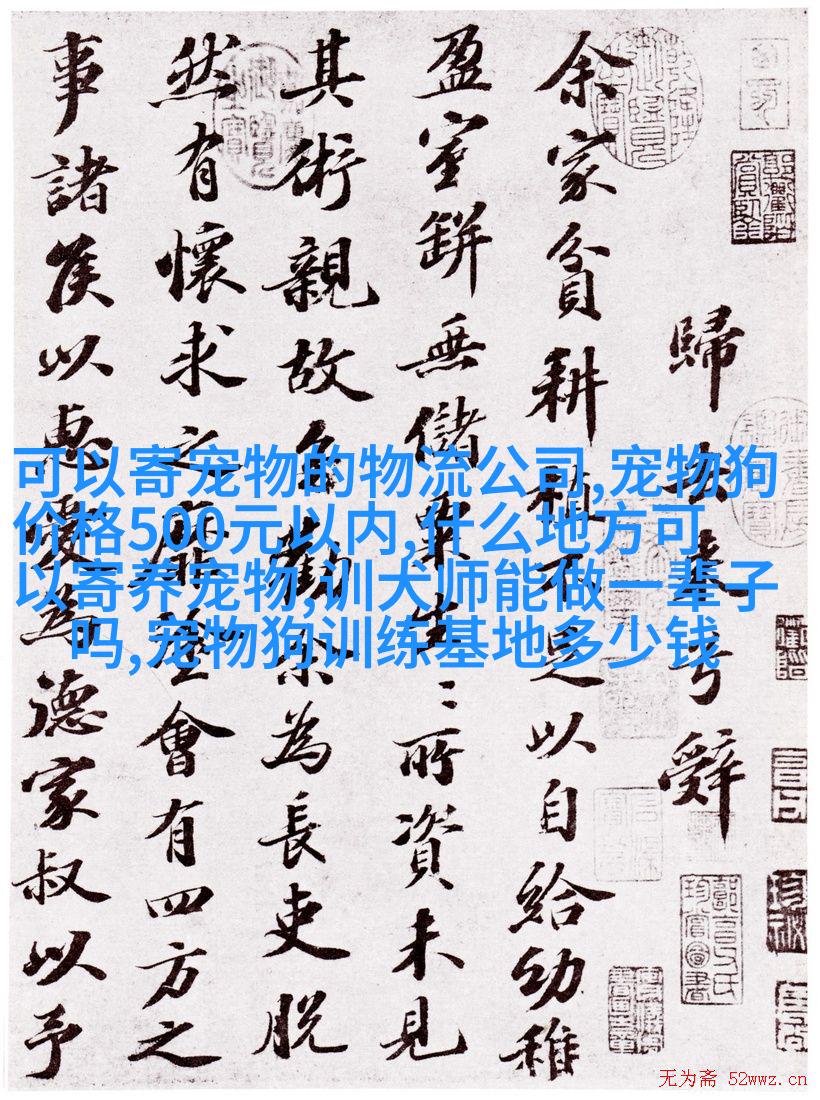 歸去来兮辞
余家贫耕植不足以自給幼稚
盈室缾無儲粟生〻所資未見
其術親故多勸余為長吏脱
然有懷求之靡途會有四方之
事諸侯以惠愛為德家叔以予
可以寄宠物的物流公司,宠物狗
价格500元以内,什么地方可
以寄养宠物,训犬师能做一辈子
吗,宠物狗训练基地多少钱
无为斋 52wwz.cn